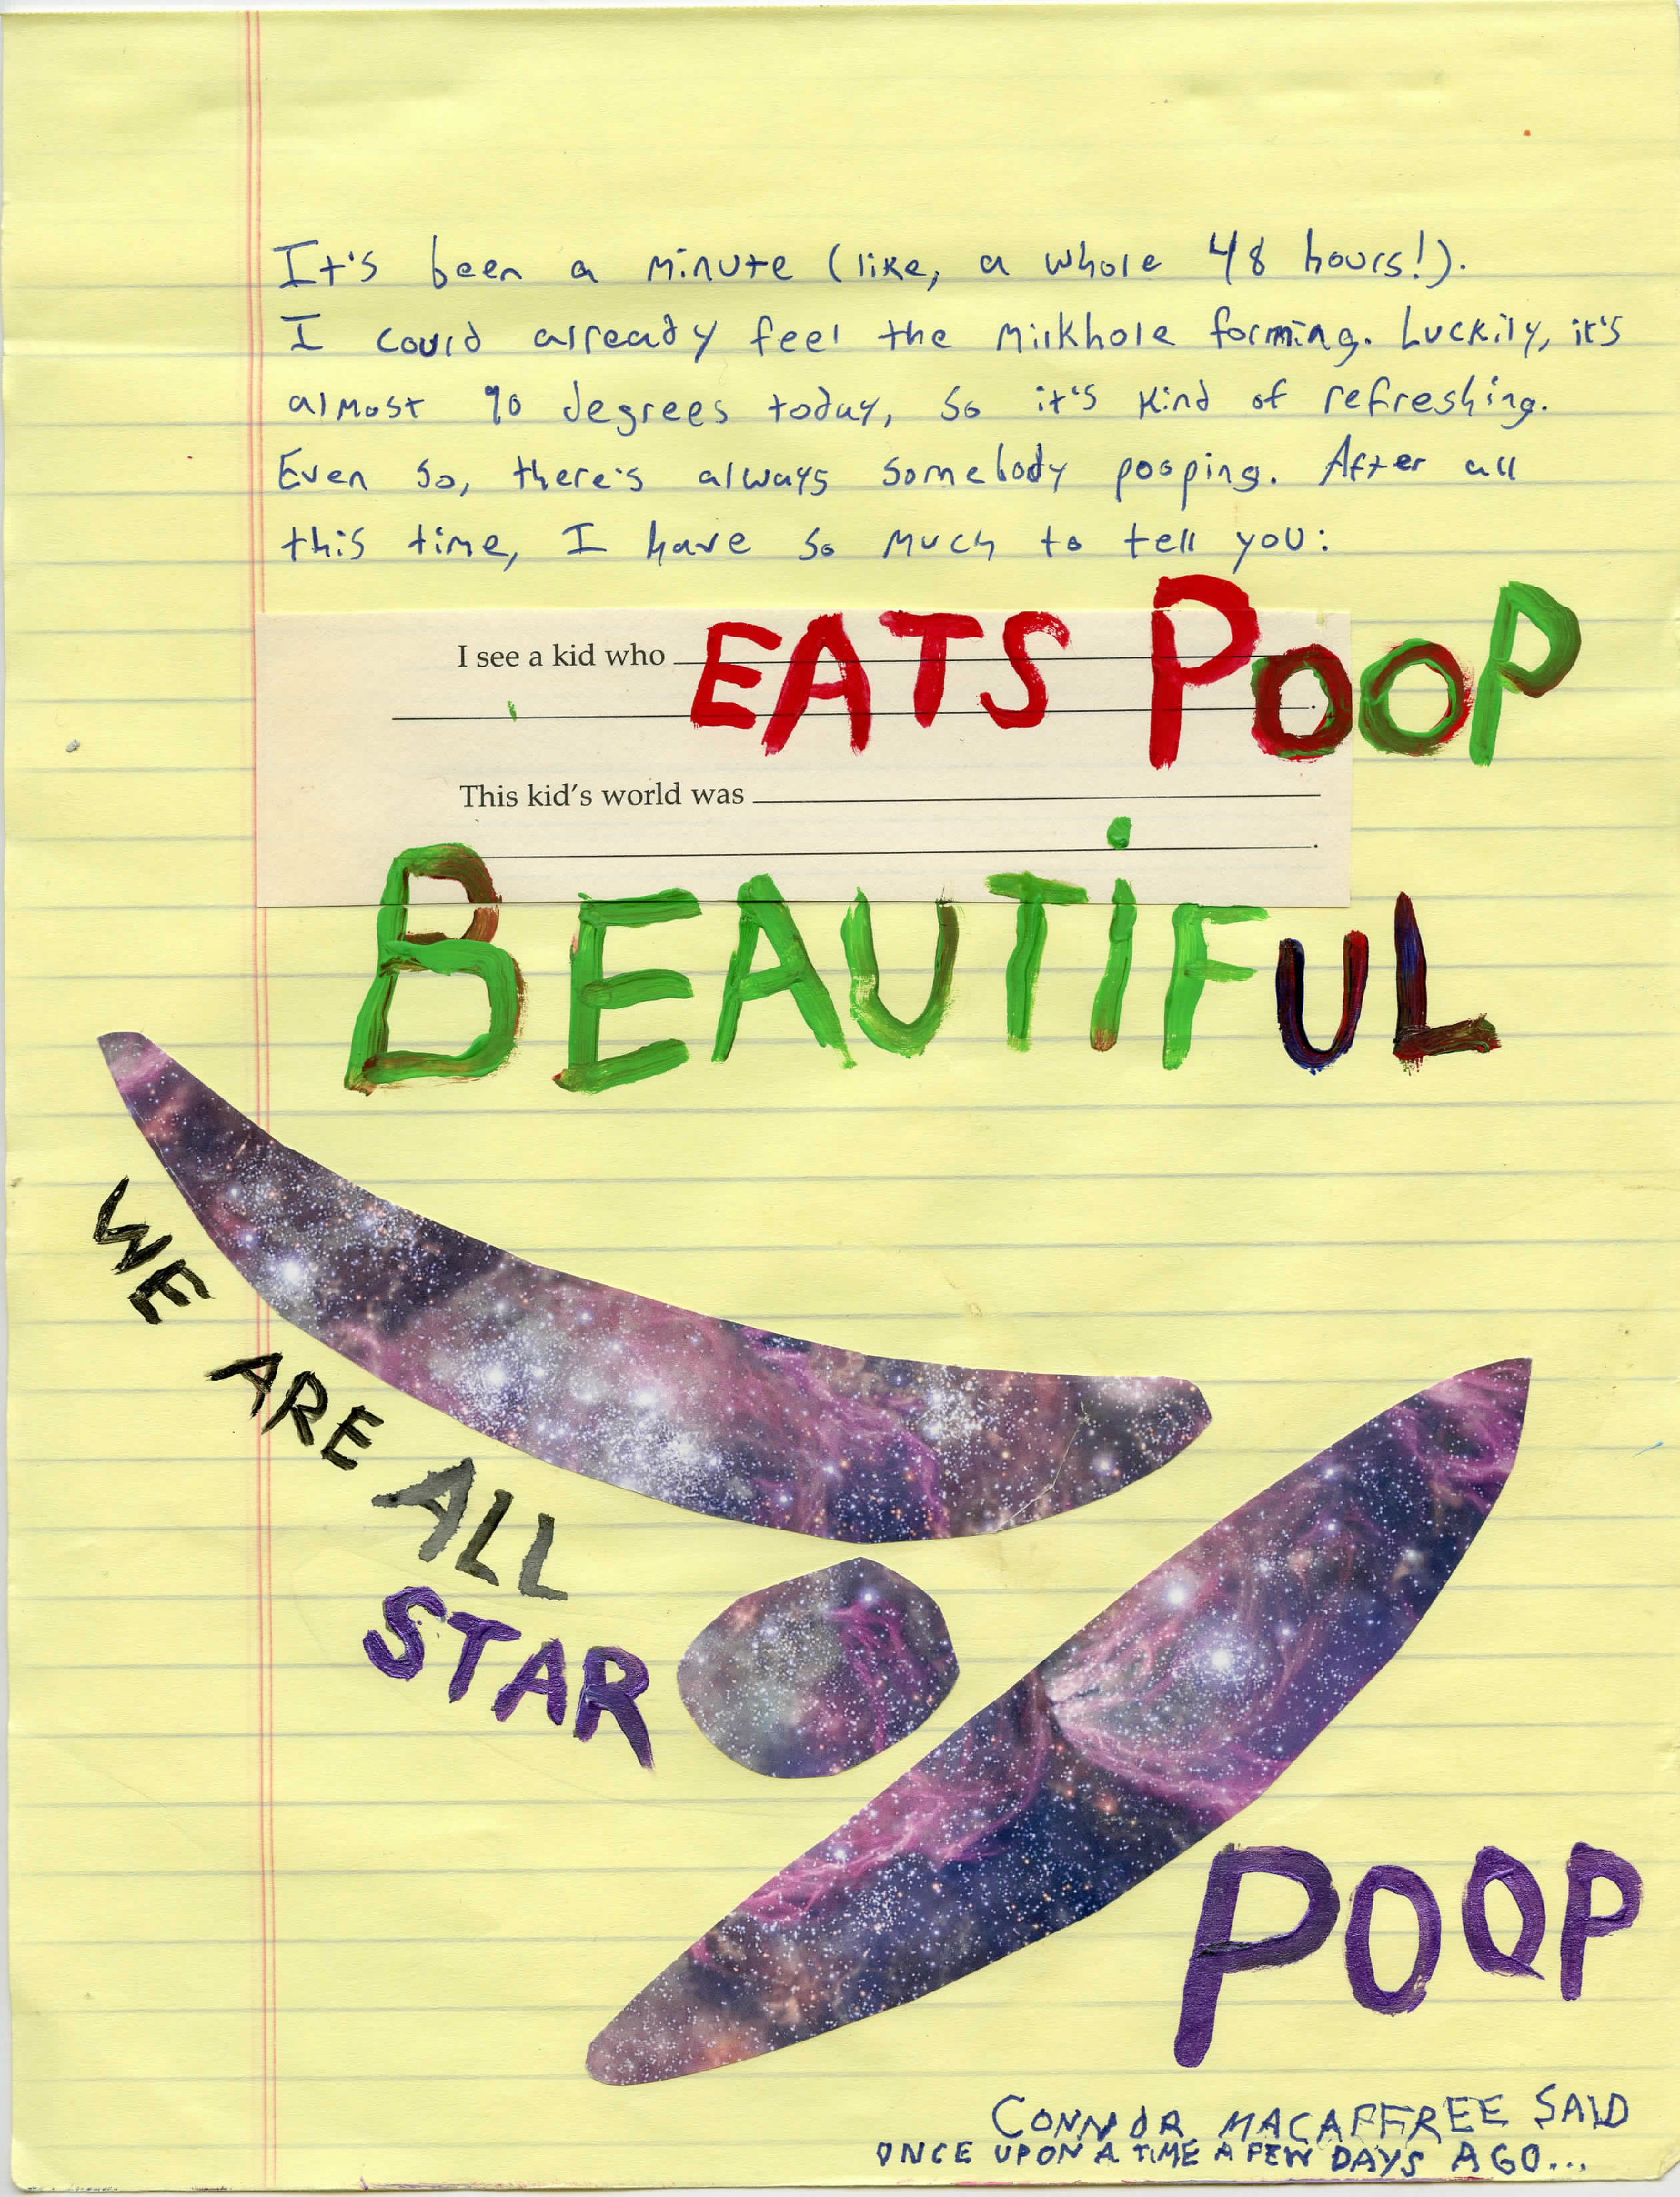 It's been a minute (like, a whole 48 hours!).
I could already feel the milkhole forming. Luckily, it's
almost 90 degrees today, so it's kind of refreshing.
Even so, there's always somebody pooping. After all
this time, I have so much to tell you:
I see a kid who EATS POOP
.
This kid's world was
.
BEAUTiFUL
WE
ARE
ALL
STAR
POOP
CONNOR MACAFFREE SAID
ONCE UPON A TIME A FEW DAYS AGO...